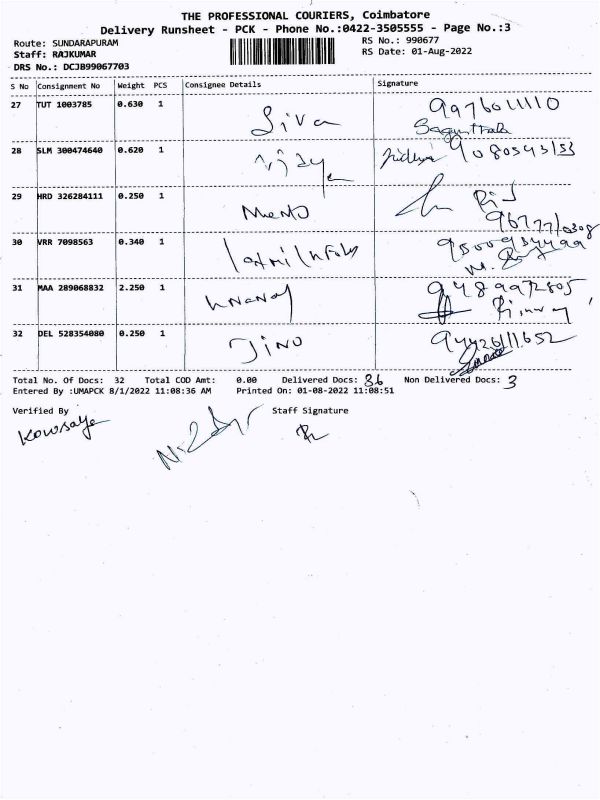 THE PROFESSIONAL COURIERS, Coimbatore
Delivery Runsheet - PCK - Phone No.:0422-3505555 - Page No.:3
Route: SUNDARAPURAM RS No.: 990677
Staff: RAJKUMAR RS Date: 01-Aug-2022
DRS No.: DCJB99067703
S No Consignment No Weight PCS Consignee Details Signature
27 TUT 1003785 0.630 1 Siva 9976011110
28 SLM 300474640 0.620 1
29 HRD 326284111 0.250 1
30 VRR 7098563 0.340 1
31 MAA 289068832 2.250 1 9489972805
32 DEL 528354080 0.250 1 Jino
Total No. Of Docs: 32 Total COD Amt: 0.00 Delivered Docs: Non Delivered Docs: 3
Entered By :UMAPCK 8/1/2022 11:08:36 AM Printed On: 01-08-2022 11:08:51
Verified By Staff Signature